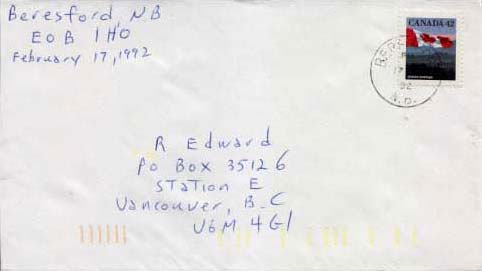 Beresford, NB
E0B 1H0
February 17, 1992
CANADA 42
BERE
17
92
N.B.
R Edward
Po Box 35126
Station E
Vancouver, B.C
V6M 4G1